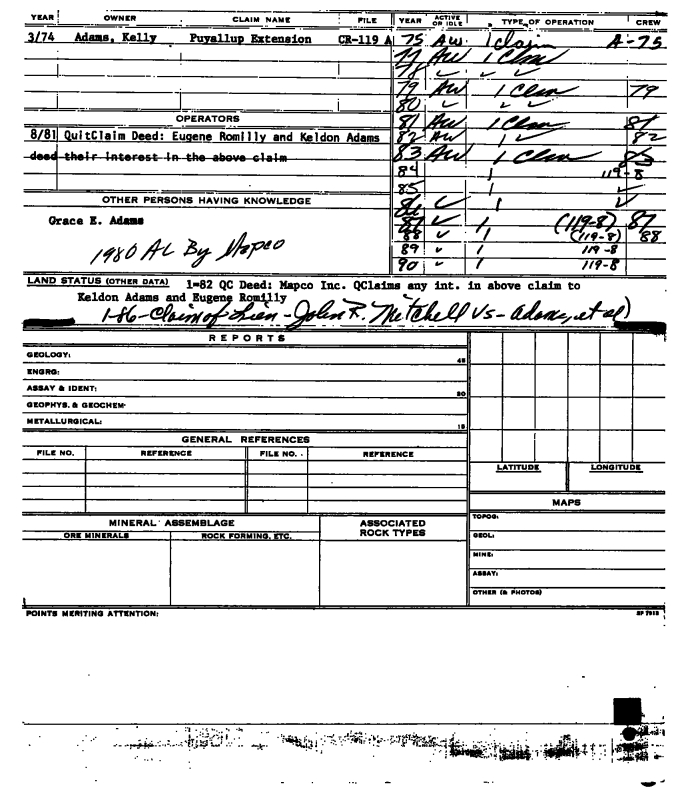 YEAR OWNER CLAIM NAME FILE YEAR ACTIVE OR IDLE TYPE OF OPERATION CREW
3/74 Adams, Kelly Puyallup Extension CR-119 A 75 AW 1 claim A-75
77 AW 1 Clm
78 ✓ ✓ ✓
79 AW 1 Clm 79
80 ✓ 1 ✓
OPERATORS
81 AW 1 Clm 81
8/81 QuitClaim Deed: Eugene Romilly and Keldon Adams 82 AW 1 ✓ 82
deed their interest in the above claim 83 AW 1 Clm 83
84 1 119-8
85 1 ✓
OTHER PERSONS HAVING KNOWLEDGE 86 ✓ 1 ✓
Grace E. Adams 87 ✓ 1 (119-8) 87
88 ✓ 1 (119-8) 88
1980 AL By Mapco 89 ✓ 1 119-8
90 ✓ 1 119-8
LAND STATUS (OTHER DATA) 1=82 QC Deed: Mapco Inc. QClaims any int. in above claim to
Keldon Adams and Eugene Romilly
1-86-Claim of Lien - John R. Mitchell Vs - Adams, et al)
REPORTS
GEOLOGY: 45
ENGRG:
ASSAY & IDENT: 30
GEOPHYS. & GEOCHEM.
METALLURGICAL: 15
GENERAL REFERENCES
FILE NO. REFERENCE FILE NO. REFERENCE
LATITUDE LONGITUDE
MAPS
MINERAL ASSEMBLAGE ASSOCIATED ROCK TYPES
ORE MINERALS ROCK FORMING, ETC.
TOPOG:
GEOL:
MINE:
ASSAY:
OTHER (& PHOTOS)
POINTS MERITING ATTENTION: SF 7912